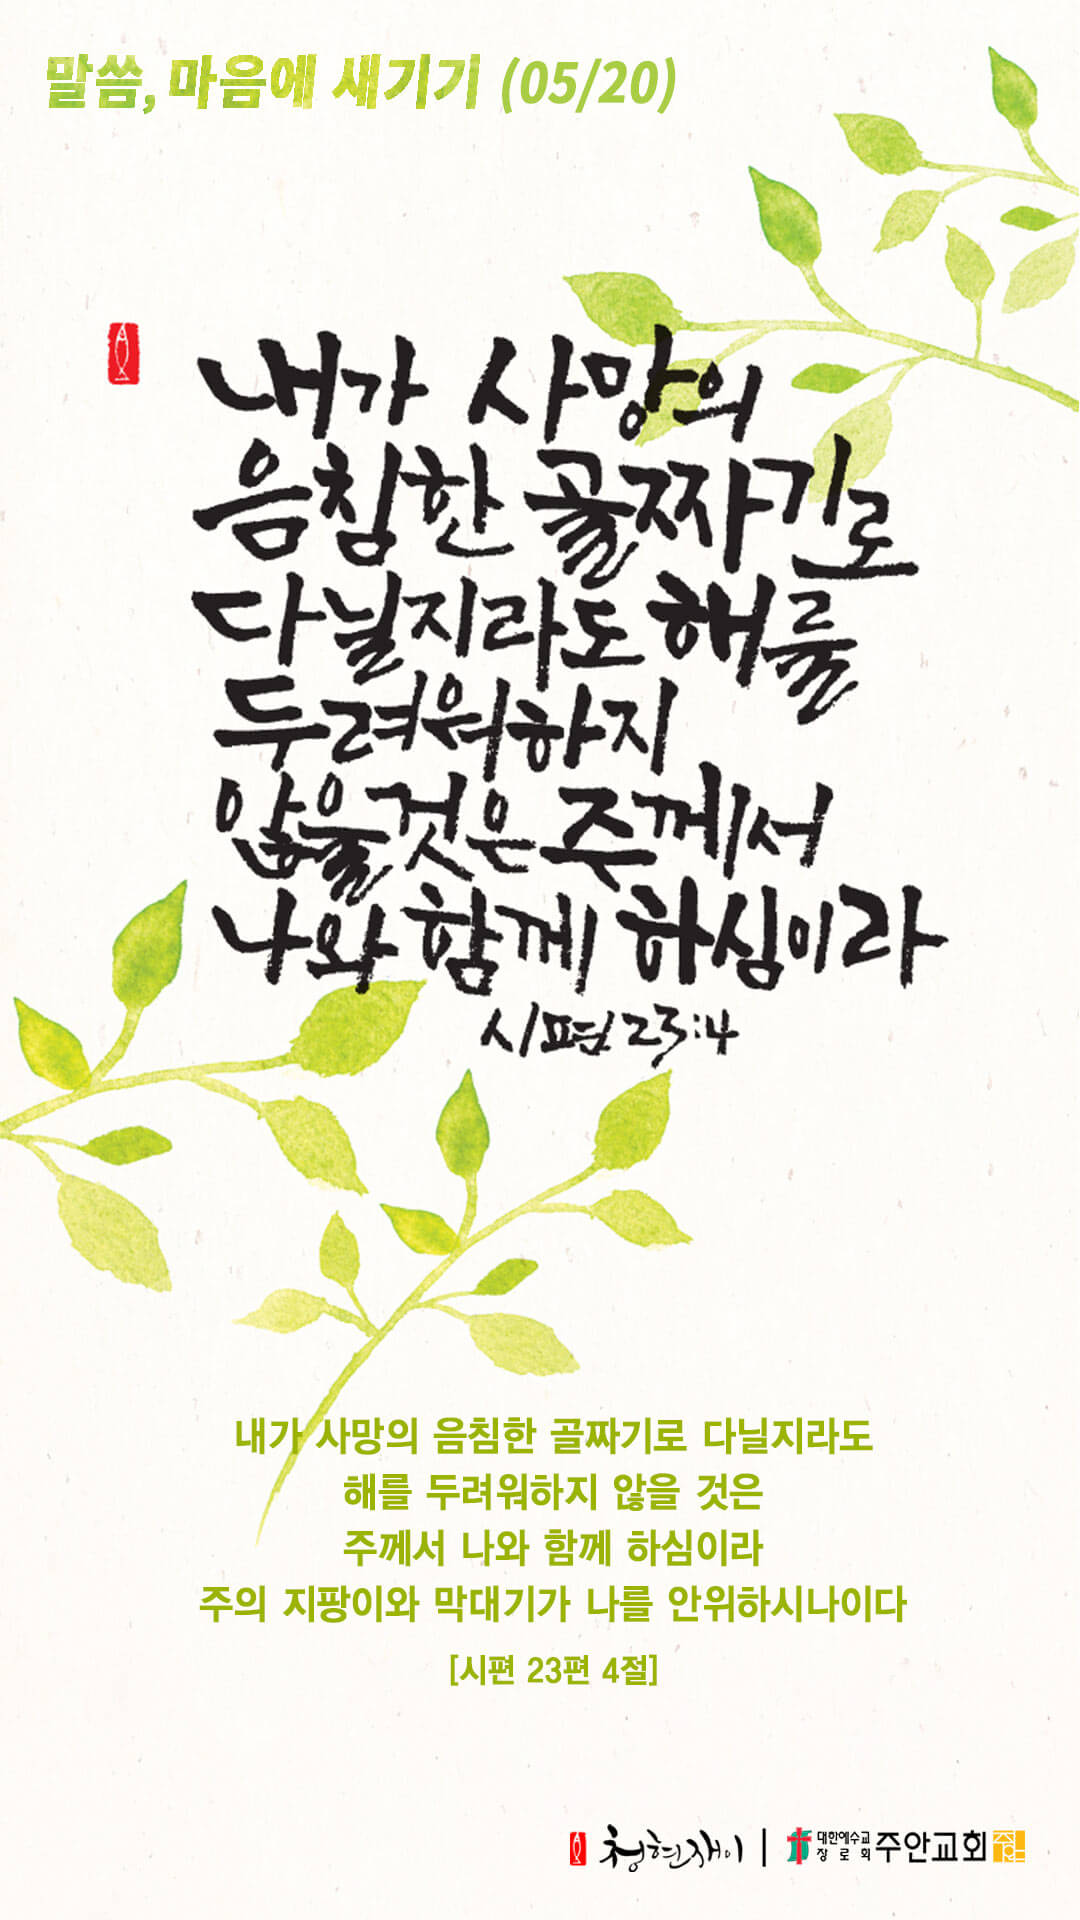 말씀, 마음에 새기기 (05/20)
내가 사망의
음침한 골짜기로
다닐지라도 해를
두려워하지
않을것은 주께서
나와 함께 하심이라
시편 23:4
내가 사망의 음침한 골짜기로 다닐지라도
해를 두려워하지 않을 것은
주께서 나와 함께 하심이라
주의 지팡이와 막대기가 나를 안위하시나이다
[시편 23편 4절]
청현재이 | 대한예수교
장로회 주안교회 주안